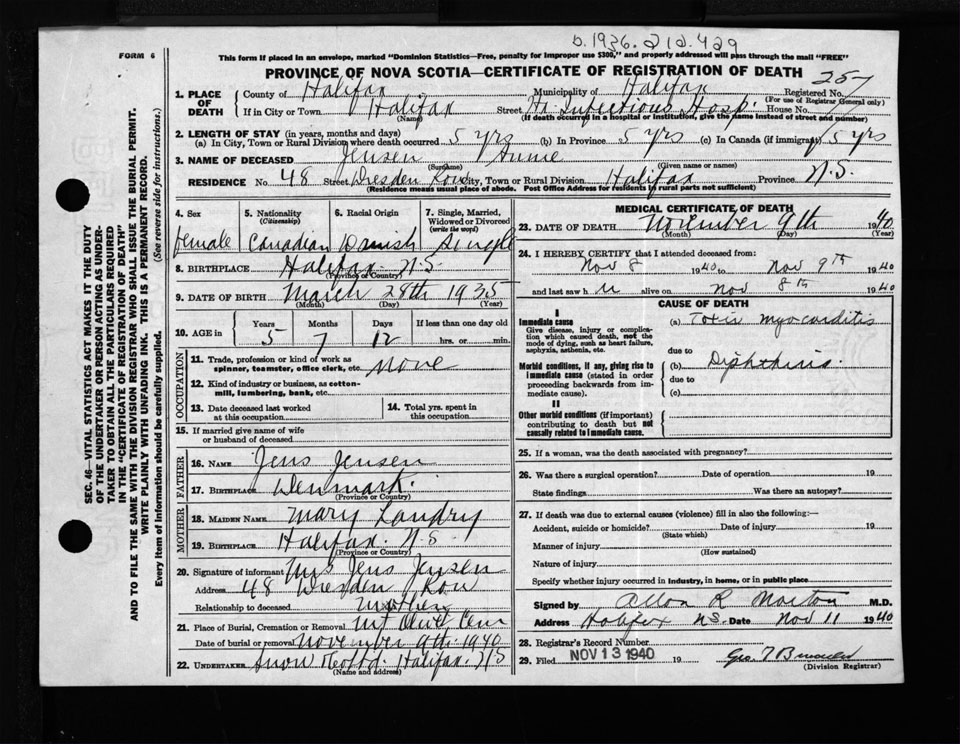 b. 1936. 212. 429
FORM 6
This form if placed in an envelope, marked "Dominion Statistics—Free, penalty for improper use $300," and properly addressed will pass through the mail "FREE"
PROVINCE OF NOVA SCOTIA—CERTIFICATE OF REGISTRATION OF DEATH
257
1. PLACE OF DEATH County of Halifax Municipality of Halifax Registered No.
(For use of Registrar General only)
If in City or Town Halifax Street Infectious Hosp. House No.
(Name) (If death occurred in a hospital or institution, give the name instead of street and number)
2. LENGTH OF STAY (in years, months and days)
(a) In City, Town or Rural Division where death occurred 5 yrs (b) In Province 5 yrs (c) In Canada (if immigrant) 5 yrs
3. NAME OF DECEASED Jensen Annie
(Surname) (Given name or names)
RESIDENCE No. 48 Street Dresden Row City, Town or Rural Division Halifax Province N.S.
(Residence means usual place of abode. Post Office Address for residents in rural parts not sufficient)
4. Sex 5. Nationality (Citizenship) 6. Racial Origin 7. Single, Married, Widowed or Divorced (write the word)
female Canadian Danish Single
8. BIRTHPLACE Halifax N.S.
(Province or Country)
9. DATE OF BIRTH March 28th 1935
(Month) (Day) (Year)
10. AGE in Years Months Days If less than one day old
5 7 12 hrs. or min.
OCCUPATION
11. Trade, profession or kind of work as spinner, teamster, office clerk, etc. none
12. Kind of industry or business, as cotton-mill, lumbering, bank, etc.
13. Date deceased last worked at this occupation
14. Total yrs. spent in this occupation.
15. If married give name of wife or husband of deceased
FATHER
16. NAME Jens Jensen
17. BIRTHPLACE Denmark.
(Province or Country)
MOTHER
18. MAIDEN NAME Mary Landry
19. BIRTHPLACE Halifax. N.S.
(Province or Country)
20. Signature of informant Mrs Jens Jensen
Address 48 Dresden Row
Relationship to deceased Mother
21. Place of Burial, Cremation or Removal Mt Olivet Cem
Date of burial or removal November 1940
22. UNDERTAKER Snow Halifax. N.S
(Name and address)
MEDICAL CERTIFICATE OF DEATH
23. DATE OF DEATH November 9th 1940
(Month) (Day) (Year)
24. I HEREBY CERTIFY that I attended deceased from:
Nov 8 1940 to Nov 9th 1940
and last saw h alive on Nov 8th 1940
CAUSE OF DEATH
I
Immediate cause
Give disease, injury or complication which caused death, not the mode of dying, such as heart failure, asphyxia, asthenia, etc.
(a) Toxic myocarditis
due to
Morbid conditions, if any, giving rise to immediate cause (stated in order proceeding backwards from immediate cause).
(b) Diphtheria.
due to
(c)
II
Other morbid conditions (if important) contributing to death but not causally related to immediate cause.
25. If a woman, was the death associated with pregnancy?
26. Was there a surgical operation? Date of operation 19
State findings Was there an autopsy?
27. If death was due to external causes (violence) fill in also the following:—
Accident, suicide or homicide? Date of injury 19
(State which)
Manner of injury
(How sustained)
Nature of injury
Specify whether injury occurred in industry, in home, or in public place
Signed by Allan R Morton M.D.
Address Halifax N.S. Date Nov 11 1940
28. Registrar's Record Number
29. Filed NOV 13 1940 19
(Division Registrar)
SEC. 46—VITAL STATISTICS ACT MAKES IT THE DUTY
OF THE UNDERTAKER OR PERSON ACTING AS UNDER-
TAKER TO OBTAIN ALL THE PARTICULARS REQUIRED
IN THE "CERTIFICATE OF REGISTRATION OF DEATH"
AND TO FILE THE SAME WITH THE DIVISION REGISTRAR WHO SHALL ISSUE THE BURIAL PERMIT.
WRITE PLAINLY WITH UNFADING INK. THIS IS A PERMANENT RECORD.
Every item of information should be carefully supplied. (See reverse side for instructions.)